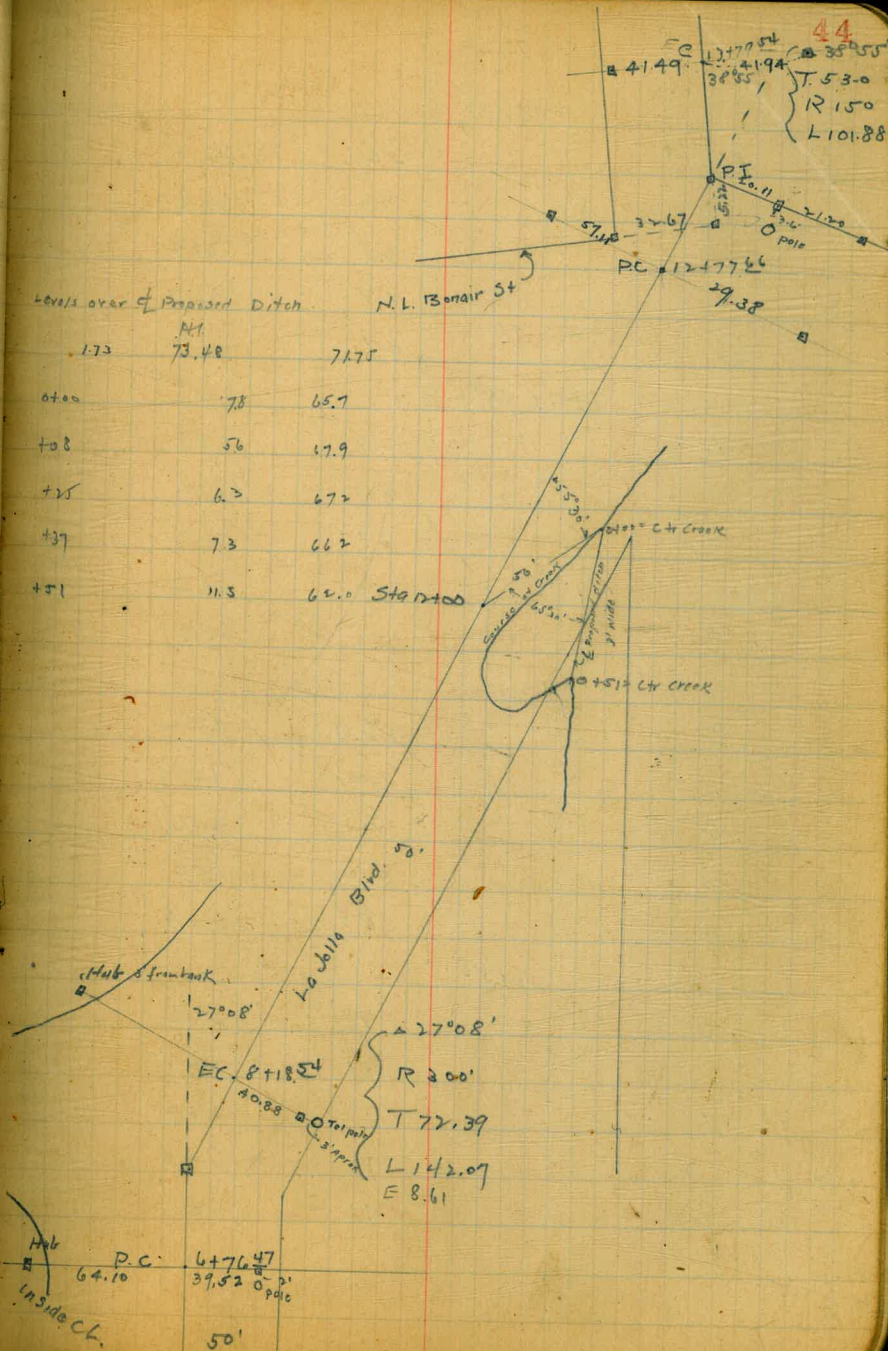 44
EC 13+79 54
41.49
41.94
38°55
△ 38°55'
T. 53.0
R 150
L 101.88
P.I.
20.11
21.20
5.22
3.6
O pole
57.4
32.67
P.C 12+77 66
29.38
N. L. Bonair St
Levels over ℄ Proposed Ditch
H.I.
1.73 73.48 71.75
0+00 7.8 65.7
+08 56 67.9
+25 6.3 67 2
+37 7.3 66 2
+51 11.5 62.0
Sta 12+00
55°30'
50'
0+00 = Ctr Creek
Course of Creek
65°30'
℄ Proposed Ditch
8' wide
0+51 = Ctr Creek
La Jolla Blvd. 50'
Hub 8 from bank
27°08'
EC. 8+18.54
40.88
O Tel pole
3' Apron
△ 27°08'
R 300'
T 72.39
L 142.07
E 8.61
Hub
P.C. 6+76 47
64.10
39.52
O 2' pole
Inside CL.
50'